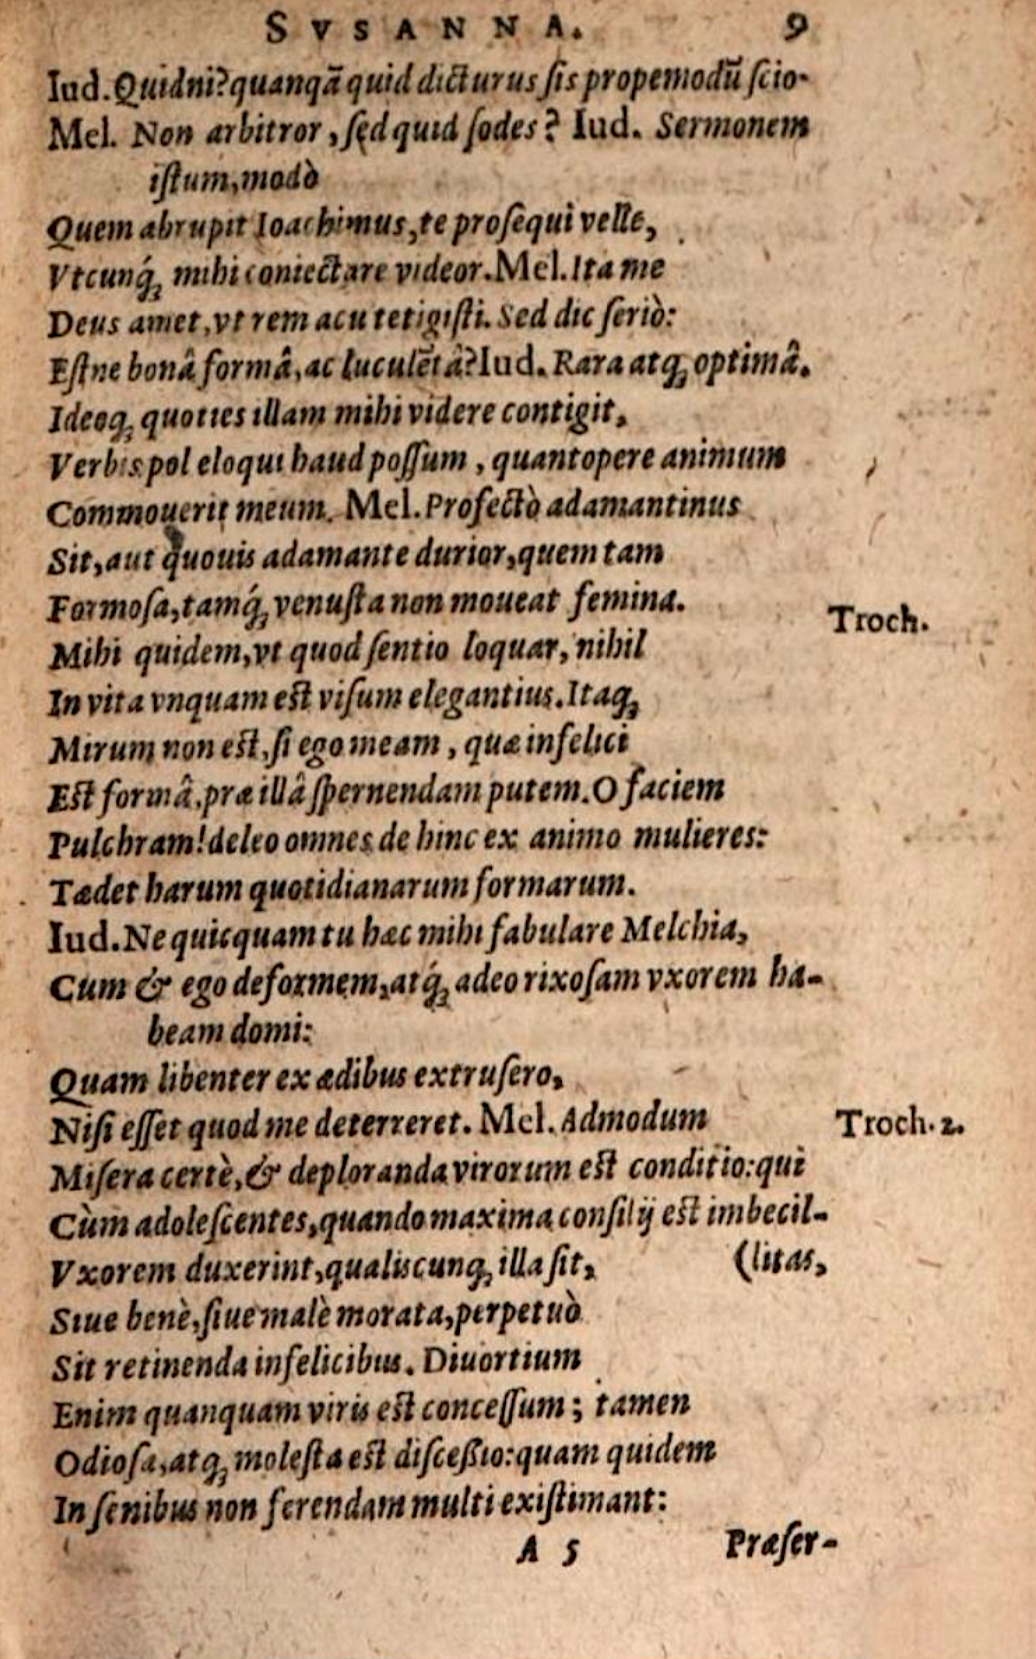 SVSANNA. 9
Iud. Quidni? quanqã quid dicturus ſis propemodũ ſcio.
Mel. Non arbitror, ſed quid ſodes? Iud. Sermonem
iſtum, modò
Quem abrupit Ioachimus, te proſequi velle,
Vtcunq́; mihi coniectare videor. Mel. Ita me
Deus amet, vt rem acu tetigiſti. Sed dic ſeriò:
Eſtne bonâ formâ, ac luculẽtâ? Iud. Rara atq; optimâ.
Ideoq; quoties illam mihi videre contigit,
Verbis pol eloqui haud poſſum, quantopere animum
Commouerit meum. Mel. Profectò adamantinus
Sit, aut quouis adamante durior, quem tam
Formoſa, tamq́; venuſta non moueat femina.
Troch.
Mihi quidem, vt quod ſentio loquar, nihil
In vita vnquam eſt viſum elegantius. Itaq;
Mirum non eſt, ſi ego meam, quæ infelici
Eſt formâ, præ illâ ſpernendam putem. O faciem
Pulchram! deleo omnes de hinc ex animo mulieres:
Tædet harum quotidianarum formarum.
Iud. Ne quicquam tu hæc mihi fabulare Melchia,
Cum & ego deformem, atq́; adeo rixoſam vxorem ha-
beam domi:
Quam libenter ex ædibus extruſero,
Niſi eſſet quod me deterreret. Mel. Admodum
Troch. 2.
Miſera certè, & deploranda virorum eſt conditio: qui
Cùm adoleſcentes, quando maxima conſilij eſt imbecil-
Vxorem duxerint, qualiscunq; illa ſit, (litas,
Siue benè, ſiue malè morata, perpetuò
Sit retinenda infelicibus. Diuortium
Enim quanquam viris eſt conceſſum; tamen
Odioſa, atq; moleſta eſt diſceßio: quam quidem
In ſenibus non ferendam multi exiſtimant:
A 5 Præſer-